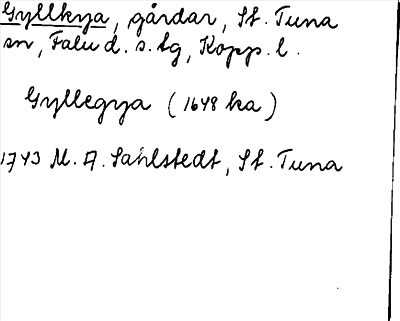 Gyllkya, gårdar, St. Tuna
sn, Falu d. s. tg, Kopp. l.
Gyllegya (1648 ka)
1743 M. A. Sahlstedt, St. Tuna